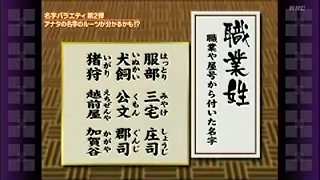 名字バラエティ 第2弾
アナタの名字のルーツが分かるかも!?
職業姓
職業や屋号から付いた名字
はっとり みやけ しょうじ
服部 三宅 庄司
いぬかい くもん ぐんじ
犬飼 公文 郡司
いがり えちぜんや かがや
猪狩 越前屋 加賀谷